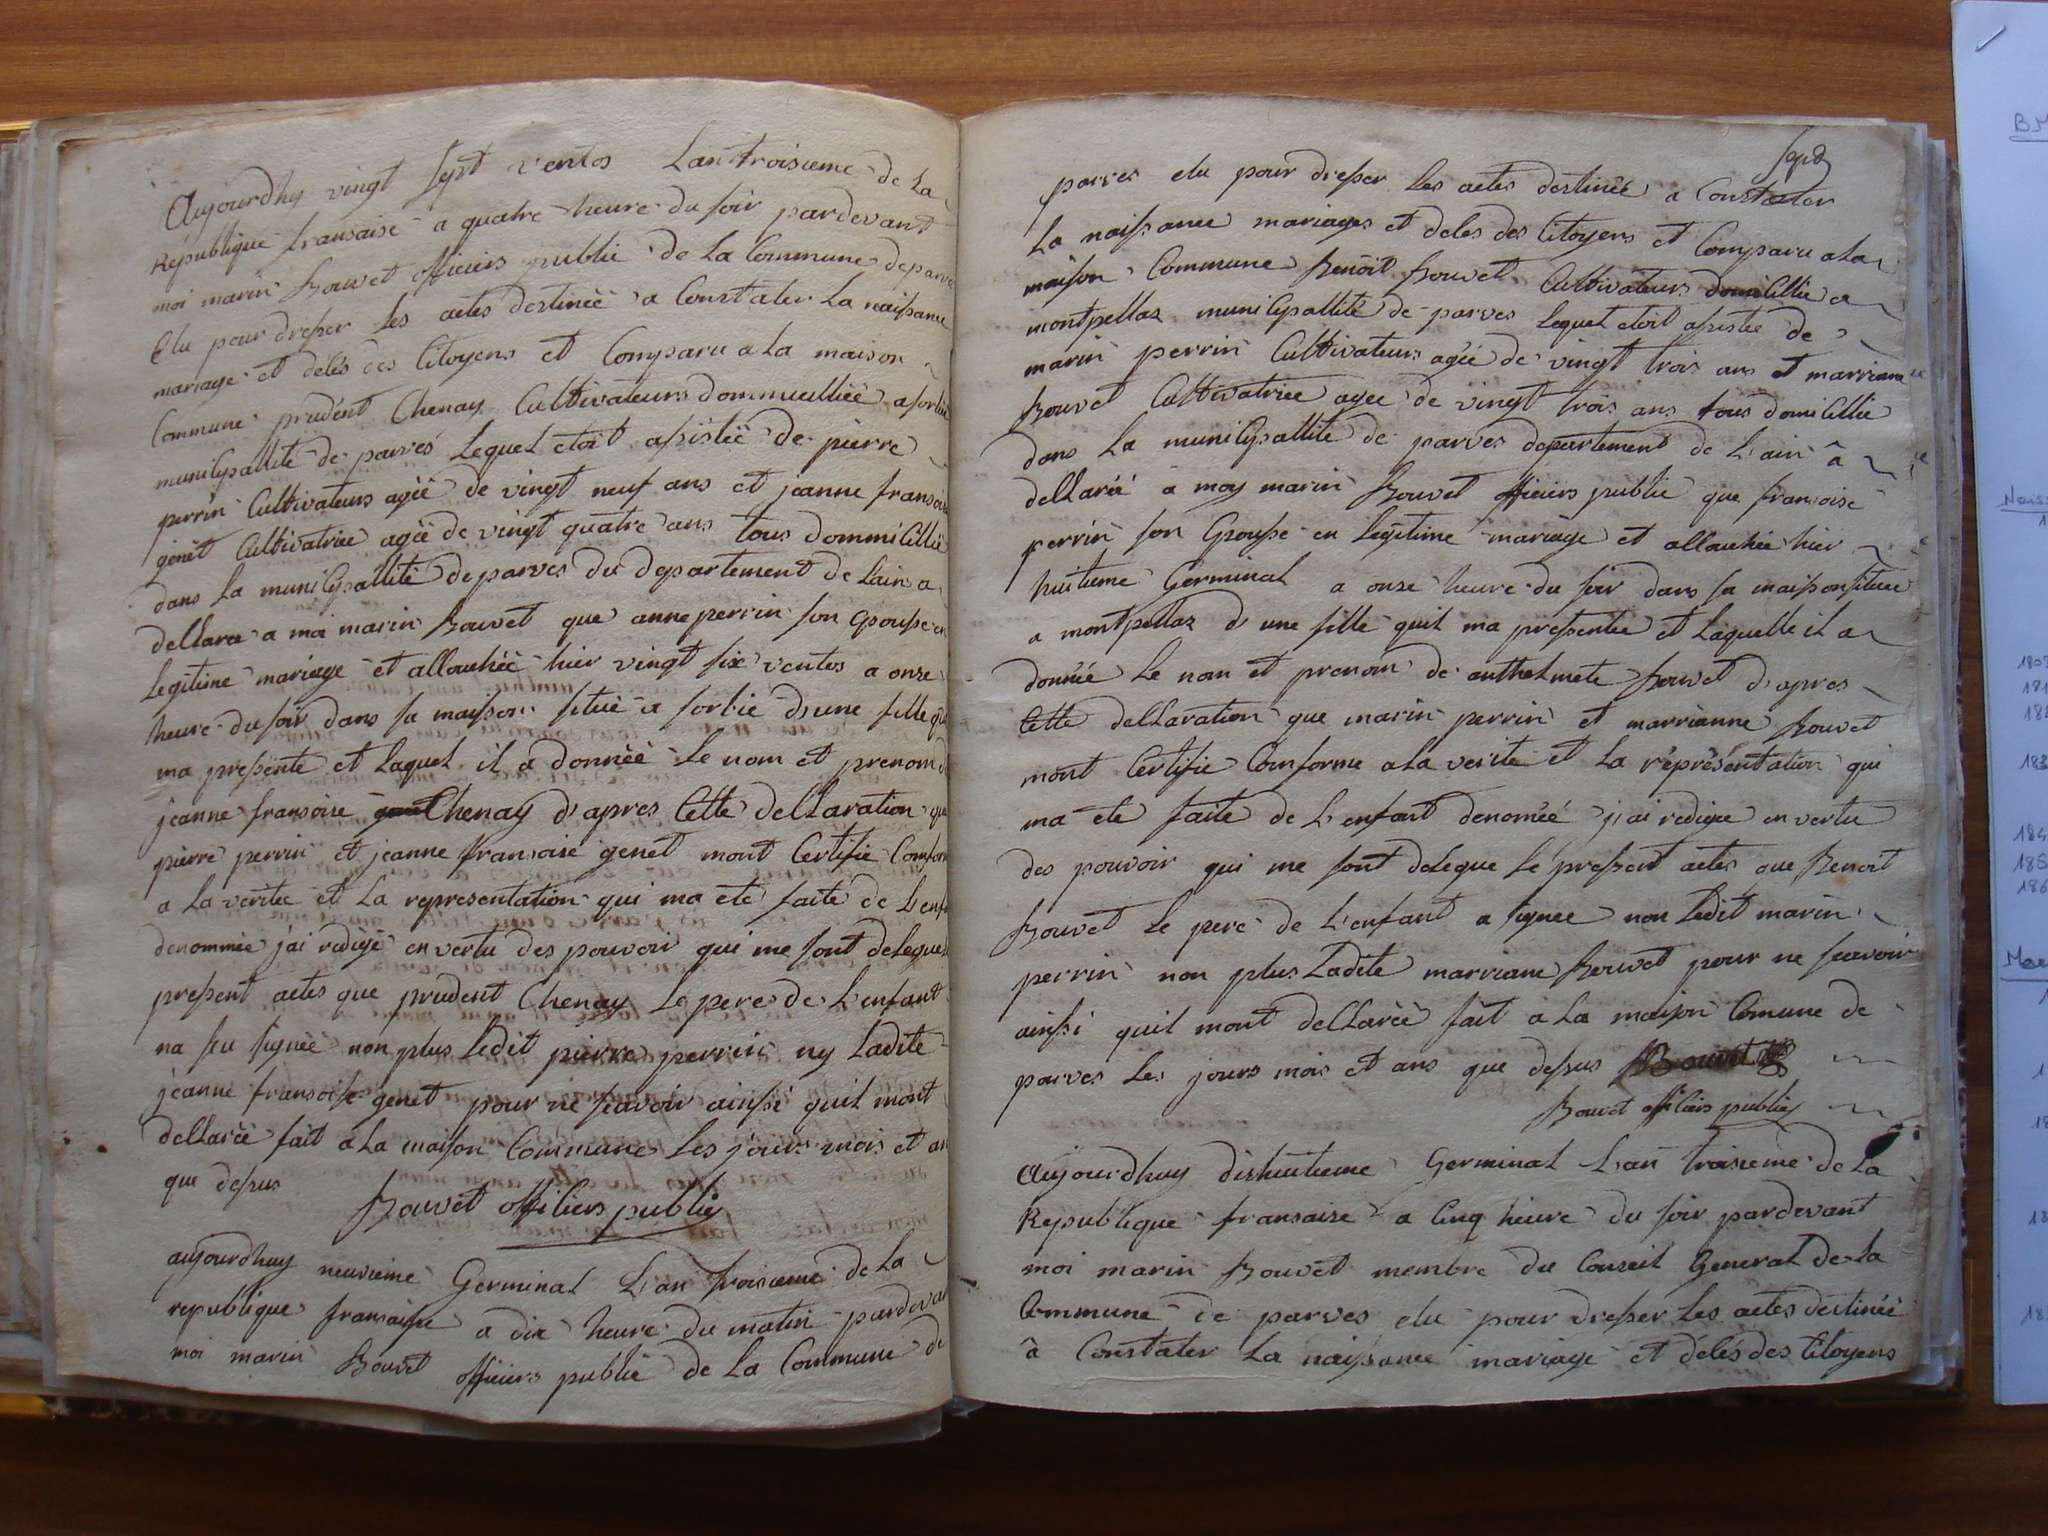 Aujourdhy vingt sept ventos Lan troisieme de La
Republique fransaise a quatre heure du soir pardevant
moi marin Bouvet officiers public de La Commune de parve
Elu pour dresser Les actes destinéé a Constater La naissance
mariage et delés des Citoyens et Comparu a La maison
Commune prudent Chenay Cultivateurs dommicilliéé a sorbie
municipallité de parves Lequel etoit assistéé de pierre
perrin Cultivateurs agéé de vingt neuf ans et jeanne fransoise
genêt Cultivatrice agéé de vingt quatre ans tous dommicillié
dans La municipallité de parves du departement de Lain a
dellaree a moi marin Bouvet que anne perrin son Epousse en
Legitime mariage et allouchéé hier vingt six ventos a onze
heure du soir dans sa maisson situé a sorbie d'une fille qu
ma pressenté et Laquel il a donnéé Le nom et prenom d
jeanne fransoise Chenay d'apres Cette dellaration que
pierre perrin et jeanne fransoise genet mont Certifie Conform
a La veritee et La representation qui ma eté faite de L'enf
denommée j'ai redigé en vertu des pouvoir qui me sont delegue
pressent actes que prudent Chenay Le peres de L'enfant
na seu signéé non plus Ledit pierre perrin ny Ladite
jeanne fransoise genet pour ne scavoir ainssi quil mont
dellaréé fait a La maison Commune Les jours mois et an
que dessus
Bouvet officiers public
aujourdhuy neuvieme Germinal L'an troisieme de La
republique fransaise a dix heure du matin pardevan
moi marin Bouvet officiers public de La Commune de
parves elu pour dresser Les actes destinéé a Constater
La naissance mariages et deles des Citoyens et Comparu a La
maison Commune Benoit Bouvet Cultivateurs domicillié a
montpellaz municipallité de parves Lequel etoit assistée de
marin perrin Cultivateurs agéé de vingt trois ans et marriane
Bouvet Cultivatrice agee de vingt trois ans tous domicillié
dans La municipallité de parves departement de L'ain â
dellaréé a moy marin Bouvet officiers public que fransoise
perrin son Epousse en Legitime mariage et allouchéé hier
huitieme Germinal a onze heure du soir dans sa maisson situee
a montpellaz d'une fille quil ma pressentée et Laquelle il a
donnéé Le nom et prenom de anthelmete Bouvet d'apres
Cette dellaration que marin perrin et marrianne Bouvet
mont Certifie Comforme a La verité et La représentation qui
ma ete faite de L'enfant denoméé j'ai redigee en vertu
des pouvoir qui me sont delegue Le pressent actes que Benoit
Bouvet Le pere de L'enfant a signee non Ledit marin
perrin non plus Ladite marriane Bouvet pour ne scavoir
ainssi quil mont dellaréé fait a La maison Comune de
parves Les jours mois et ans que dessus Bouvet
Bouvet officiers public
Aujourdhuy dishuitieme Germinal L'an troisieme de La
Republique fransaise a Cinq heure du soir pardevant
moi marin Bouvet membre du Conseil General de La
Commune de parves elu pour dresser Les actes destinéé
â Constater La naissance mariage et délés des Citoyens